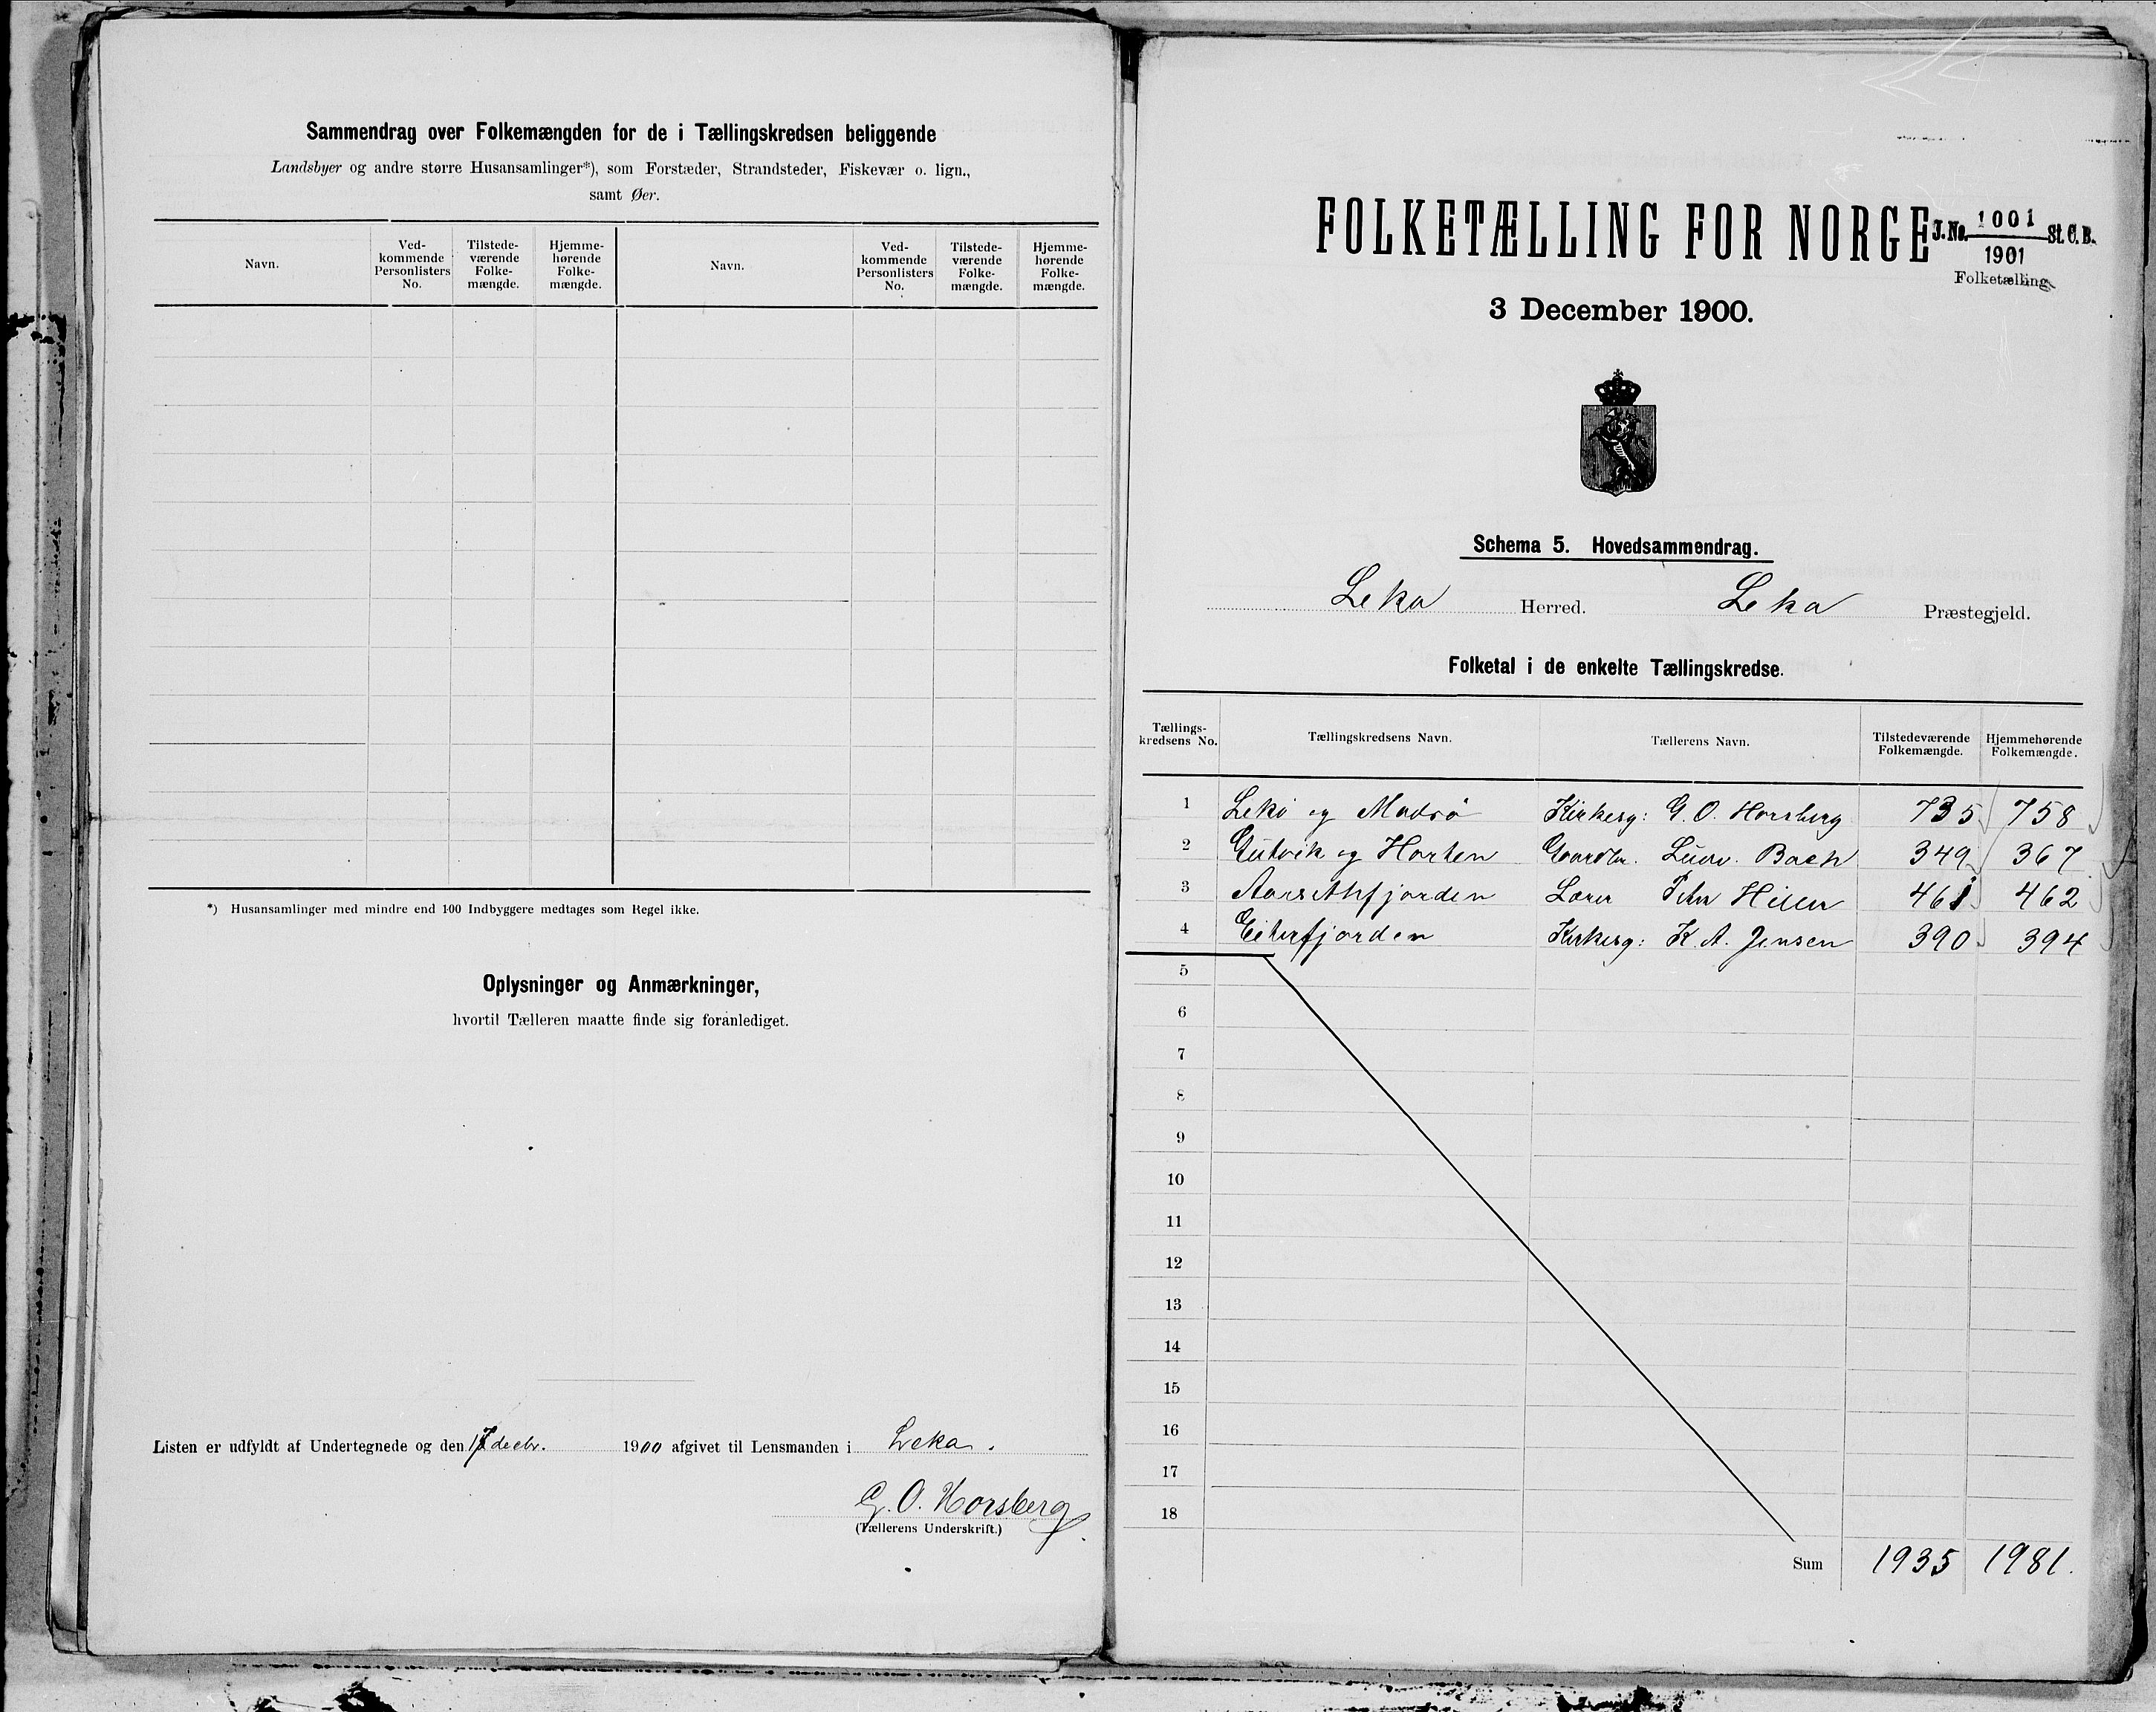 Sammendrag over Folkemængden for de i Tællingskredsen beliggende
Landsbyer og andre større Husansamlinger*), som Forstæder, Strandsteder, Fiskevær o. lign.,
samt Øer.
Navn. Ved-kommende Personlisters No. Tilstede-værende Folke-mængde. Hjemme-hørende Folke-mængde. Navn. Ved-kommende Personlisters No. Tilstede-værende Folke-mængde. Hjemme-hørende Folke-mængde.
*) Husansamlinger med mindre end 100 Indbyggere medtages som Regel ikke.
Oplysninger og Anmærkninger,
hvortil Tælleren maatte finde sig foranlediget.
Listen er udfyldt af Undertegnede og den 17 decbr. 1900 afgivet til Lensmanden i Leka.
G. O. Horsberg
(Tællerens Underskrift.)
FOLKETÆLLING FOR NORGE
J. No. 1001 St. C. B.
1901
Folketælling
3 December 1900.
Schema 5. Hovedsammendrag.
Leka Herred. Leka Præstegjeld.
Folketal i de enkelte Tællingskredse.
Tællings-kredsens No. Tællingskredsens Navn. Tællerens Navn. Tilstedeværende Folkemængde. Hjemmehørende Folkemængde.
1 Lekø og Madsø Kirkesg: G. O. Horsberg 735 758
2 Gutvik og Horten Gaardbr. Ludv. Bach 349 367
3 Aarsethfjorden Lærer Peter 461 462
4 Eiterfjorden Kirkesg: K. A. Jensen 390 394
5
6
7
8
9
10
11
12
13
14
15
16
17
18
Sum 1935 1981.